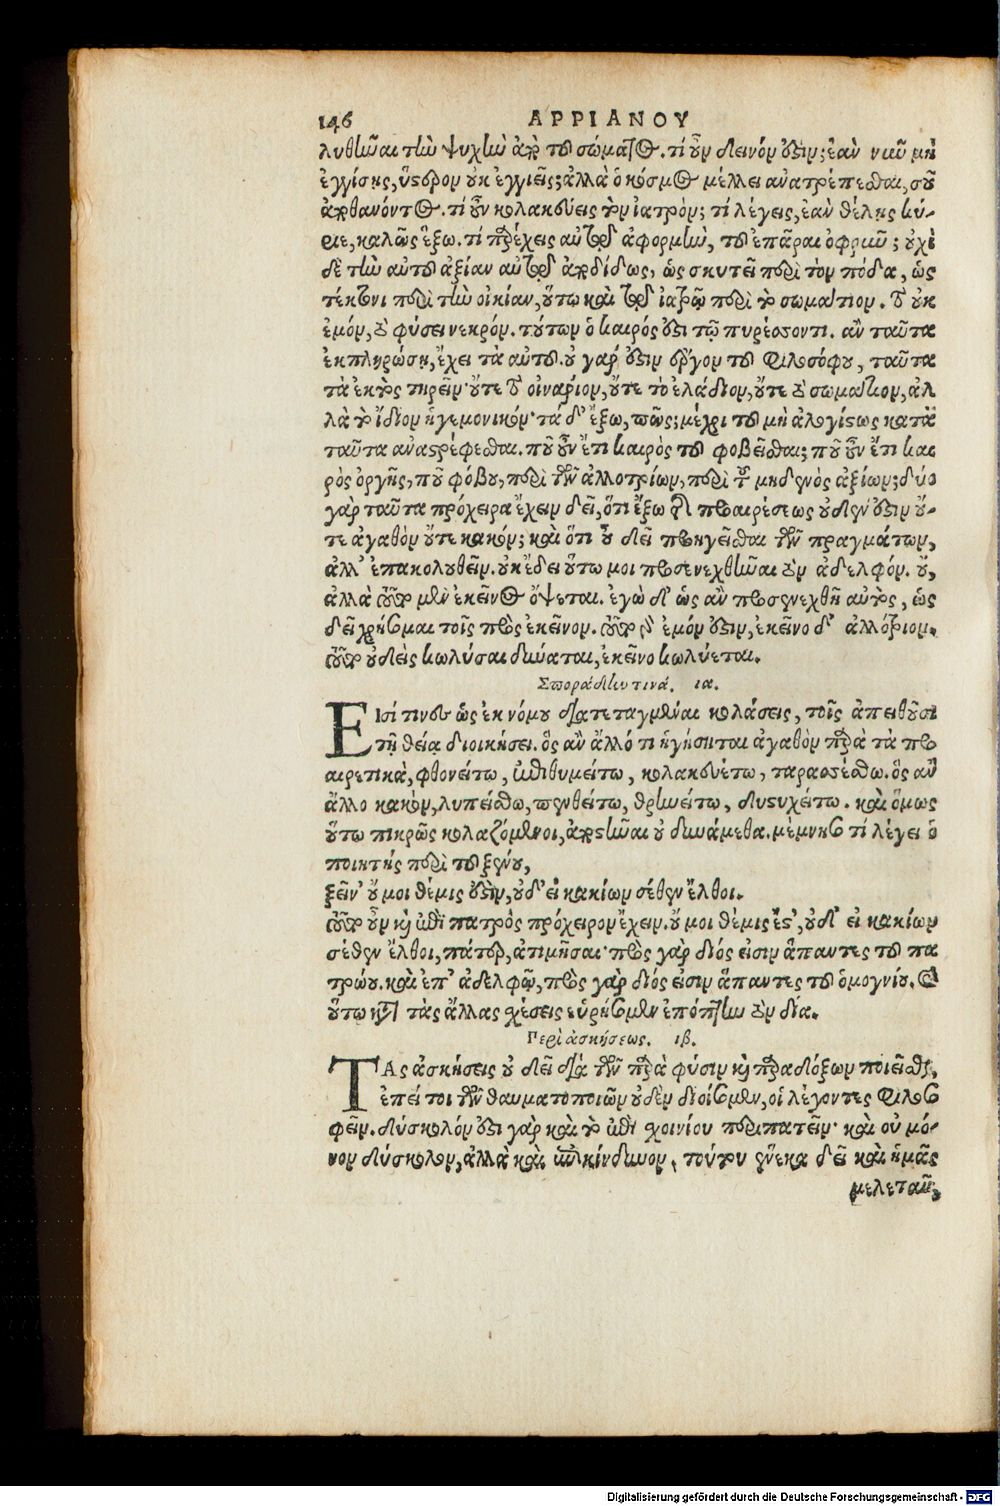 146 ΑΡΡΙΑΝΟΥ
λυθῆναι τὴν ψυχὴν ἀπὸ τοῦ σώματος. τί οὖν δεινόν ἐστιν; ἐὰν νῦν μὴ
ἐγγίσῃς, ὕστερον οὐκ ἐγγιεῖς; ἀλλὰ ὁ κόσμος μέλλει ἀνατρέπεσθαι, σοῦ
ἀποθανόντος. τί οὖν κολακεύεις τὸν ἰατρόν; τί λέγεις, ἐὰν θέλῃς κύ-
ριε, καλῶς ἕξω. τί παρέχεις αὐτῷ ἀφορμὴν, τοῦ ἐπᾶραι ὀφρῦν; οὐχὶ
δὲ τὴν αὐτοῦ ἀξίαν αὐτῷ ἀποδίδως, ὡς σκυτεῖ περὶ τὸν πόδα, ὡς
τέκτονι περὶ τὴν οἰκίαν, οὕτω καὶ τῷ ἰατρῷ περὶ τὸ σωμάτιον. τὸ οὐκ
ἐμόν, τὸ φύσει νεκρόν. τούτων ὁ καιρός ἐστι τῷ πυρέσσοντι. ἂν ταῦτα
ἐκπληρώσῃ, ἔχει τὰ αὐτοῦ. οὐ γάρ ἐστιν ἔργον τοῦ φιλοσόφου, ταῦτα
τὰ ἐκτὸς τηρεῖν· οὔτε τὸ οἰνάριον, οὔτε τὸ ἐλάδιον, οὔτε τὸ σωμάτιον, ἀλ
λὰ τὸ ἴδιον ἡγεμονικόν· τὰ δ' ἔξω, πῶς; μέχρι τοῦ μὴ ἀλογίστως κατὰ
ταῦτα ἀναστρέφεσθαι. ποῦ οὖν ἔτι καιρὸς τοῦ φοβεῖσθαι; ποῦ οὖν ἔτι και
ρὸς ὀργῆς, ποῦ φόβου, περὶ τῶν ἀλλοτρίων, περὶ τῶν μηδενὸς ἀξίων; δύο
γὰρ ταῦτα πρόχειρα ἔχειν δεῖ, ὅτι ἔξω τῆς προαιρέσεως οὐδέν ἐστιν οὔ-
τε ἀγαθὸν οὔτε κακόν; καὶ ὅτι οὐ δεῖ προηγεῖσθαι τῶν πραγμάτων,
ἀλλ' ἐπακολουθεῖν. οὐκ ἔδει οὕτω μοι προσενεχθῆναι τὸν ἀδελφόν. οὔ,
ἀλλὰ τοῦτο μὲν ἐκεῖνος ὄψεται. ἐγὼ δ' ὡς ἂν προσενεχθῇ αὐτὸς, ὡς
δεῖ χρήσομαι τοῖς πρὸς ἐκεῖνον. τοῦτο γὰρ ἐμόν ἐστιν, ἐκεῖνο δ' ἀλλότριον.
τοῦτο οὐδεὶς κωλῦσαι δύναται, ἐκεῖνο κωλύεται.
Σποράδην τινά. ια.
ΕΙσί τινες ὡς ἐκ νόμου διατεταγμέναι κολάσεις, τοῖς ἀπειθοῦσι
τῇ θείᾳ διοικήσει. ὃς ἂν ἄλλό τι ἡγήσηται ἀγαθὸν παρὰ τὰ προ
αιρετικὰ, φθονείτω, ἐπιθυμείτω, κολακευέτω, ταρασσέσθω. ὃς ἂν
ἄλλο κακὸν, λυπείσθω, πενθείτω, θρηνείτω, δυστυχείτω. καὶ ὅμως
οὕτω πικρῶς κολαζόμενοι, ἀποστῆναι οὐ δυνάμεθα. μέμνησο τί λέγει ὁ
ποιητὴς περὶ τοῦ ξένου,
ξεῖν' οὔ μοι θέμις ἐστὶν, οὐδ' εἰ κακίων σέθεν ἔλθοι.
τοῦτο οὖν καὶ ἐπὶ πατρὸς πρόχειρον ἔχειν. οὔ μοι θέμις ἔστ', οὐδ' εἰ κακίων
σέθεν ἔλθοι, πάτερ, ἀτιμῆσαι· πρὸς γὰρ διός εἰσιν ἅπαντες τοῦ πα
τρῴου. καὶ ἐπ' ἀδελφῷ, πρὸς γὰρ διός εἰσιν ἅπαντες τοῦ ὁμογνίου. καὶ
οὕτω κατὰ τὰς ἄλλας σχέσεις εὑρήσομεν ἐπόπτην τὸν δία.
Περὶ ἀσκήσεως. ιβ.
ΤΑς ἀσκήσεις οὐ δεῖ διὰ τῶν παρὰ φύσιν καὶ παραδόξων ποιεῖσθαι,
ἐπεί τοι τῶν θαυματοποιῶν οὐδὲν διοίσομεν, οἱ λέγοντες φιλοσο
φεῖν. δύσκολόν ἐστι γὰρ καὶ τὸ ἐπὶ σχοινίου περιπατεῖν· καὶ οὐ μό-
νον δύσκολον, ἀλλὰ καὶ ἐπικίνδυνον. τούτου ἕνεκα δεῖ καὶ ἡμᾶς
μελετᾶν,
Digitalisierung gefördert durch die Deutsche Forschungsgemeinschaft - DFG